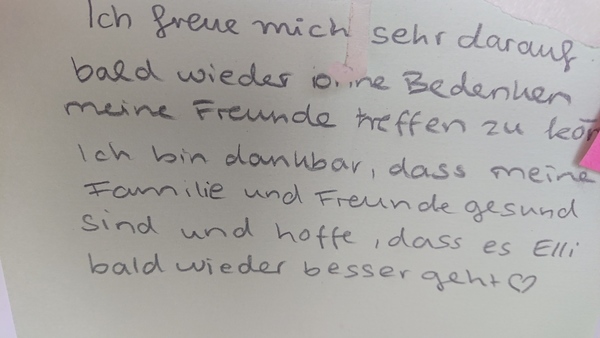 Ich freue mich sehr darauf
bald wieder ohne Bedenken
meine Freunde treffen zu
Ich bin dankbar, dass meine
Familie und Freunde gesund
sind und hoffe, dass es Elli
bald wieder besser geht ♡